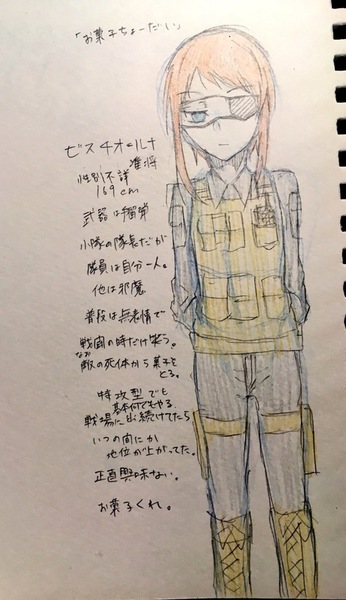 「お菓子ちょーだい」
ビスチオールナ
准将
性別不詳
169cm
武器は
小隊の隊長だが
隊員は自分一人。
他は邪魔
普段は無表情で
戦闘の時だけ笑う。
なお
敵の死体から菓子を
とる。
特攻型でも
基本何でもやる
戦場に出続けてたら
いつの間にか
地位が上がってた。
正直興味ない。
お菓子くれ。